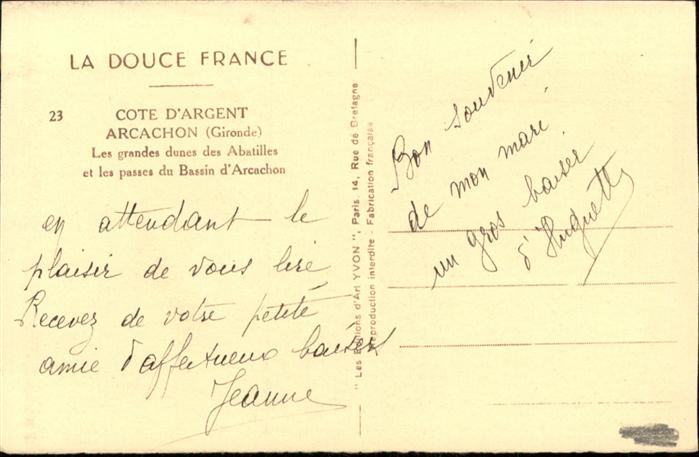 LA DOUCE FRANCE
23
COTE D'ARGENT
ARCACHON (Gironde)
Les grandes dunes des Abatilles
et les passes du Bassin d'Arcachon
en attendant le
plaisir de vous lire
Recevez de votre petite
amie d'affectueux baisers
Jeanne
" Les Editions d'Art YVON ", Paris 14, Rue de Bretagne
Reproduction interdite - Fabrication française
Bon souvenir
de mon mari
un gros baiser
d'Huguette